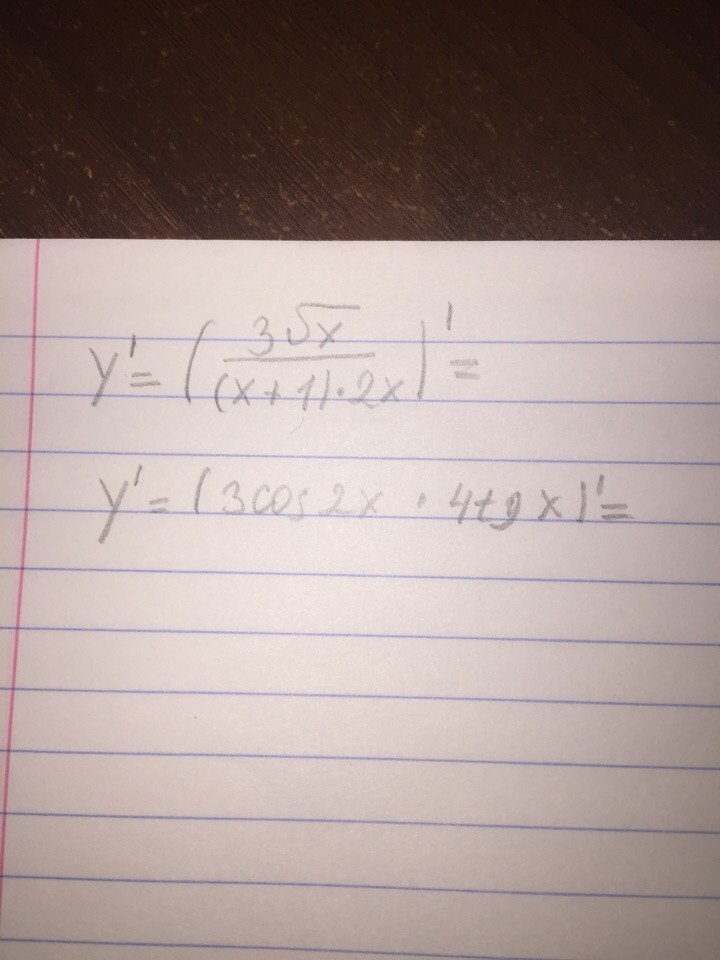 y' = (3√x / (x+1)·2x)' =
y' = (3cos2x · 4tgx)' =